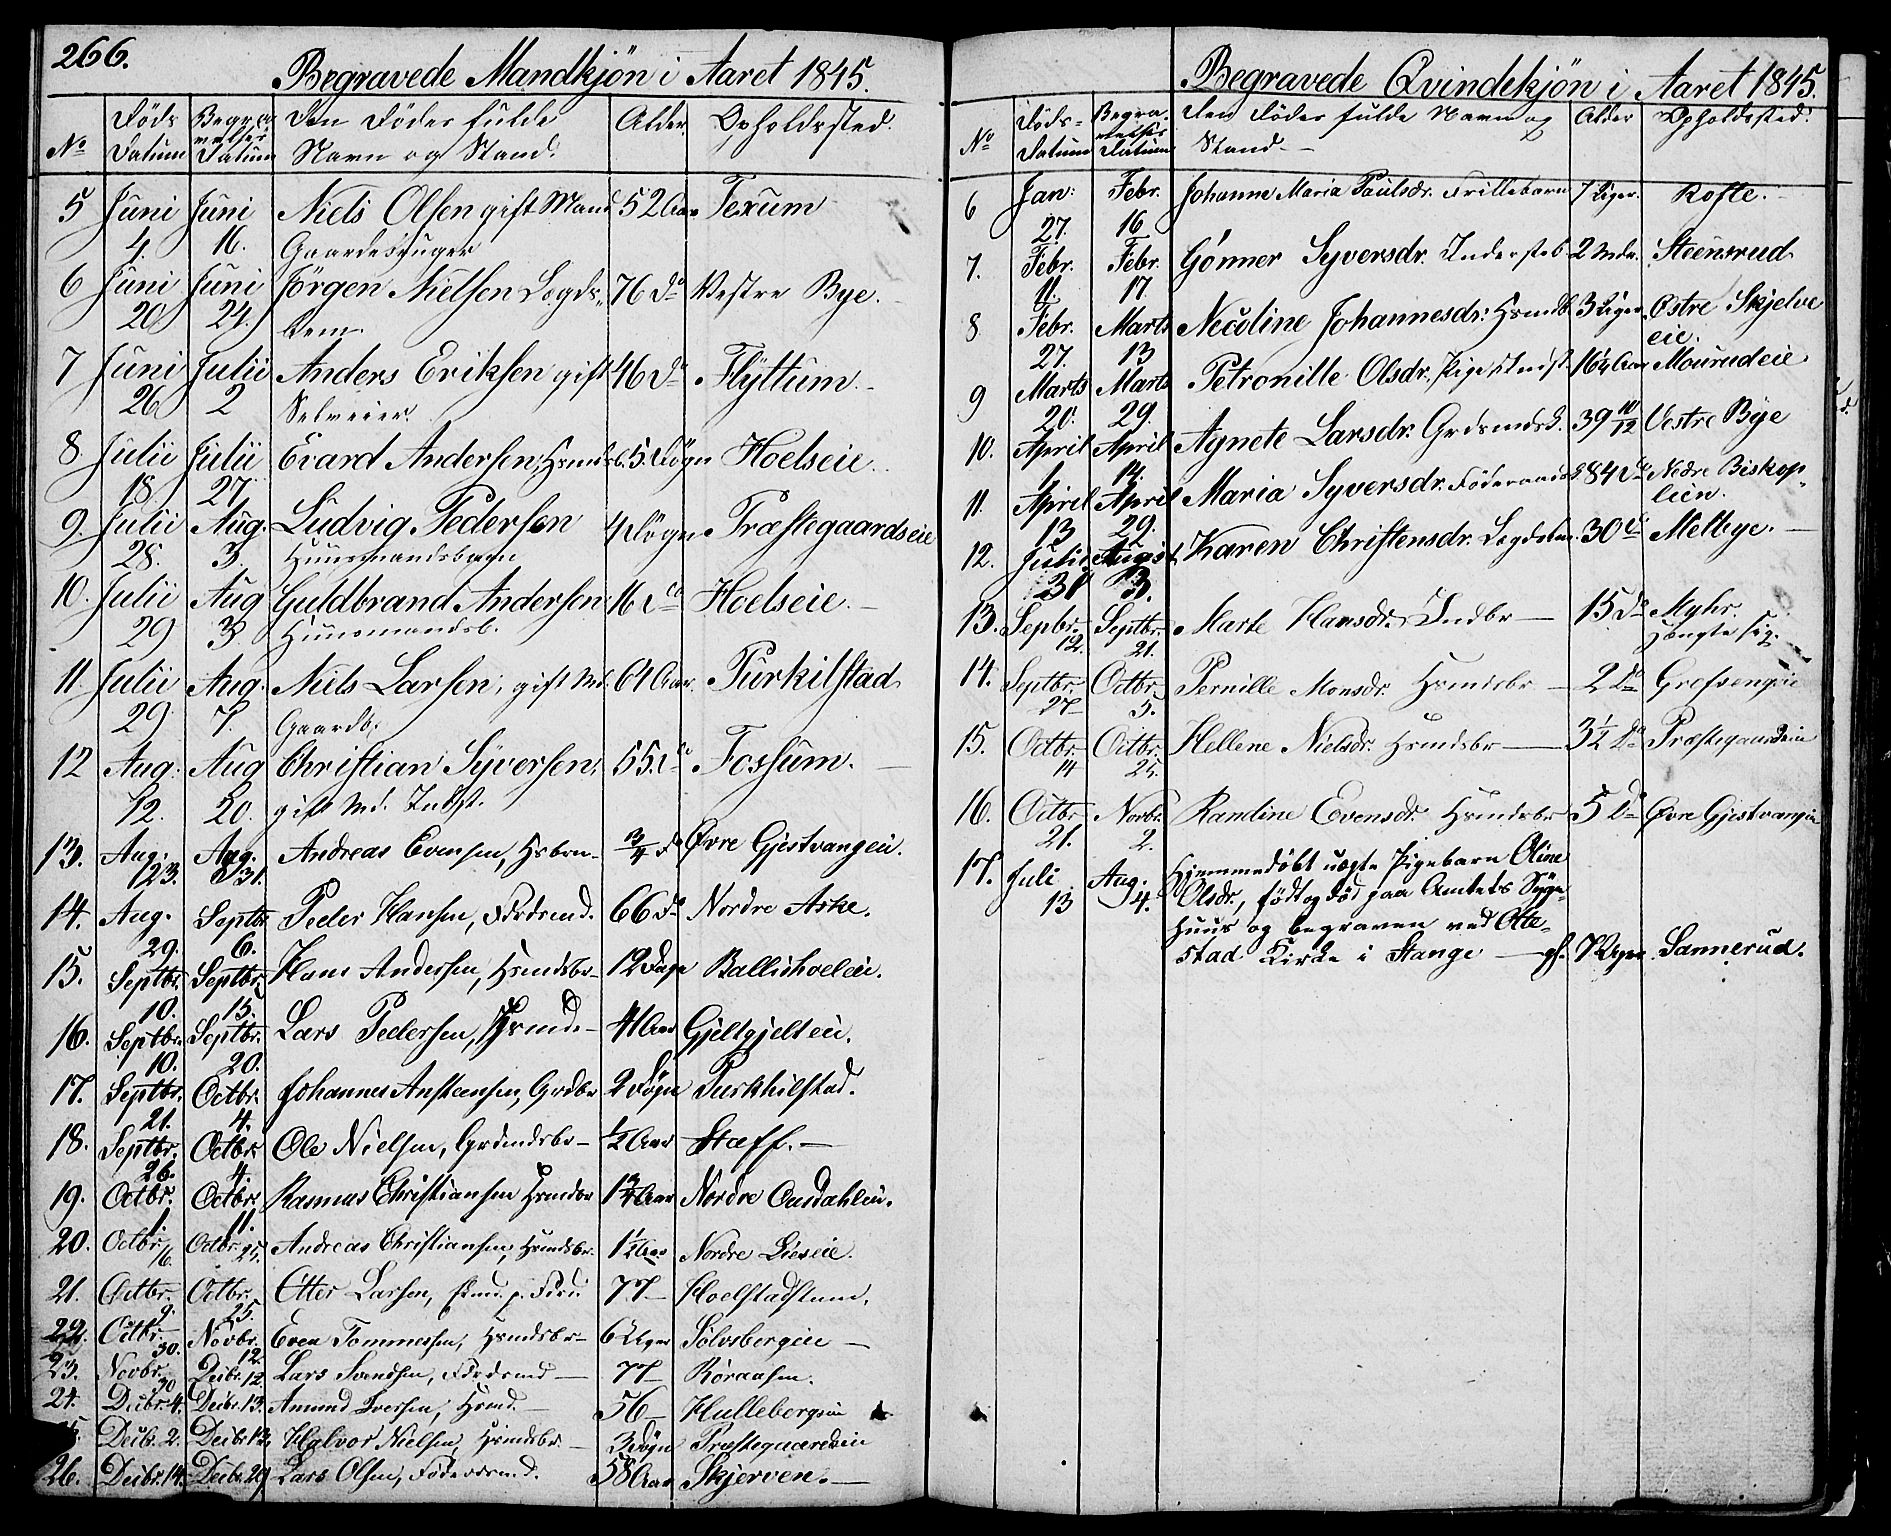 266.
Begravede Mandkjøn i Aaret 1845.
No Døds Datum Begravelses Datum Den Dødes fulde Navn og Stand. Alder. Opholdssted.
5 Juni 4. Juni 16. Niels Olsen gift Mand 52 Aar Texum
Gaardbruger
6 Juni 20 Juni 24. Jörgen Nielsen Legds- 76 Do Vestre Bye.
lem
7 Juni 26 Julii 2 Anders Eriksen gift 46 Do Flÿttum.
Selveier
8 Julii 18. Julii 27. Evard Andersen, Hsmdsb. 5. Døgn Hoelseie.
9. Julii 28. Aug. 3. Ludvig Pedersen 4 Døgn Præstegaardseie
Huusmandsbarn
10. Julii 29 Aug 3 Guldbrand Andersen 16 do Hoelseie.
Huusmandsb.
11. Julii 29. Aug. 7. Niels Larsen, gift Md. 64 Aar Purkilstad
Gaardb:
12 Aug. 12. Aug 20. Christian Sÿversen, 55. do Fossum.
gift Md. Indst.
13. Aug. 23. Aug. 31. Andreas Evensen, 3/4 Do Øvre Gjestvangeie.
14. Aug. 29. Septbr 6. Peder Hansen, Fdrdsmd. 66 Do Nordre Aske.
15. Septbr. 10. Septbr. 15. Hans Andersen, Hsmdsbr 12 Dage Ballisholeie.
16. Septbr. 10. Septbr. 20. Lars Pedersen, Hsmd. 41 Aar Gjeltgjelteie.
17. Septbr. 21. Octbr. 4. Johannes Ansteensen, Grdbr 2 Døgn Purkhilstad.
18. Septbr. 26. Octbr. 4. Ole Nielsen, Grdmdsbr 1/2 Aar Stæff.
19. Octbr. 1. Octbr. 11. Rasmus Christiansen Hsmdsbr 1 3/4 Aar Nordre
20. Octbr. 16. Octbr. 25. Andreas Christiansen, Hsmdsbr. 1 1/2 Aar Nordre Lieseie.
21. Octbr. 9. Octbr. 25. Otter Larsen, 77 Hoelstadstuen.
22. Octbr. 30. Novbr. 12. Even Tommessen, Hsmdsbr 6 Uger Sølvsbergeie
23. Novbr. 30 Decbr. 12. Lars Svendsen, Fdrdsmd 77 Røraasen.
24. Decbr. 4. Decbr. 13. Amund Iversen, Hsmd. 56 Hullebergseie
Decbr. 2. Decbr. 13. Halvor Nielsen, Hsmdsbr. 3 Døgn Præstegaardseie
26. Decbr. 14. Decbr. 29 Lars Olsen, Føderdsmd. 58 Aar Skjerven.
Begravede Qvindekjøn i Aaret 1845.
No Døds- Datum Begravelses Datum Den Dødes fulde Navn og Stand Alder Opholdssted:
6 Jan: 27. Febr. 16 Johanne Maria Paulsdr. Frillebarn 7 Uger. Kofte.
7. Febr. 11 Febr. 17 Gønner Syversdr. Inderstsb 2 Mdr. Steensrud
8 Febr. 27. Marts 13 Nicoline Johannesdr: Hsmdb. 3 Uger. Østre Skjelve
eie.
9 Marts 20. Marts 29. Petronille Olsdr. Pige 16 1/4 Aar Mourudeie
10. April 1 April 14. Agnete Larsdr. Grdsmdsk. 39 10/12 Vestre Bye
11. April 13 April 29. Maria Syversdr. Føderaads 84 do Nedre Biskop-
lien.
12. Julii 31 August 3. Karen Christensdr. Legdslem 30 do Melbye.
13. Sepbr. 12. Septbr. 21. Marte Hansdr. Indbr 15 Do Myhr.
hængte sig.
14. Septbr. 27 Octbr. 5. Pernille Monsdr. Hsmdsbr 2 Do Grefsengeie
15. Octbr. 14 Octbr. 25. Hellene Nielsdr. Hsmdsbr 3 1/2 Do Præstegaardseie
16. Octbr 21. Novbr. 2. Randine Evensdr. Hsmdsbr 5 Do Øvre Gjestvangeie
17. Juli 13 Aug. 4. Hjemmedøbt uægte Pigebarn Oline
Olsdr., født og død paa Amtets Syge-
huus og begraven ved Otte-
stad Kirke i Stange 7 Uger Sannerud.